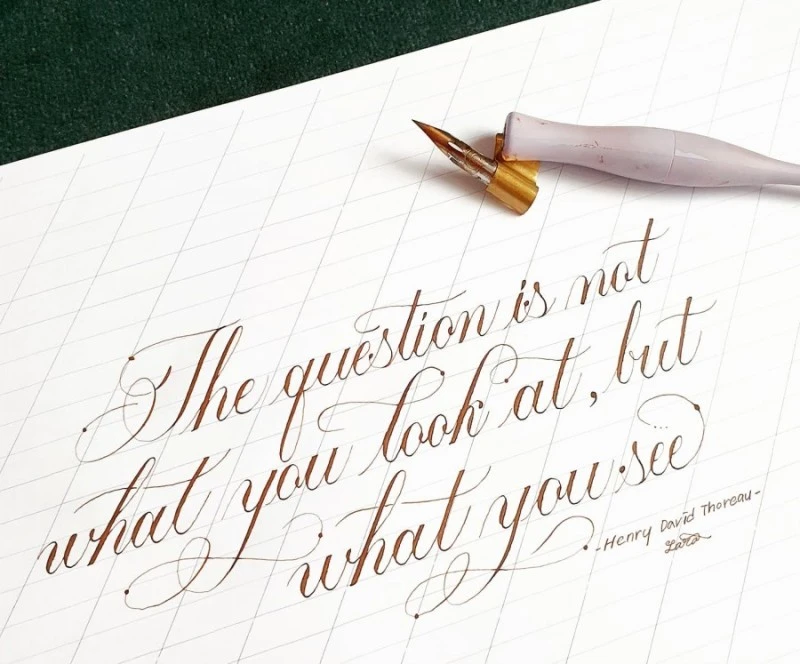 The question is not
what you look at, but
what you see
-Henry David Thoreau-